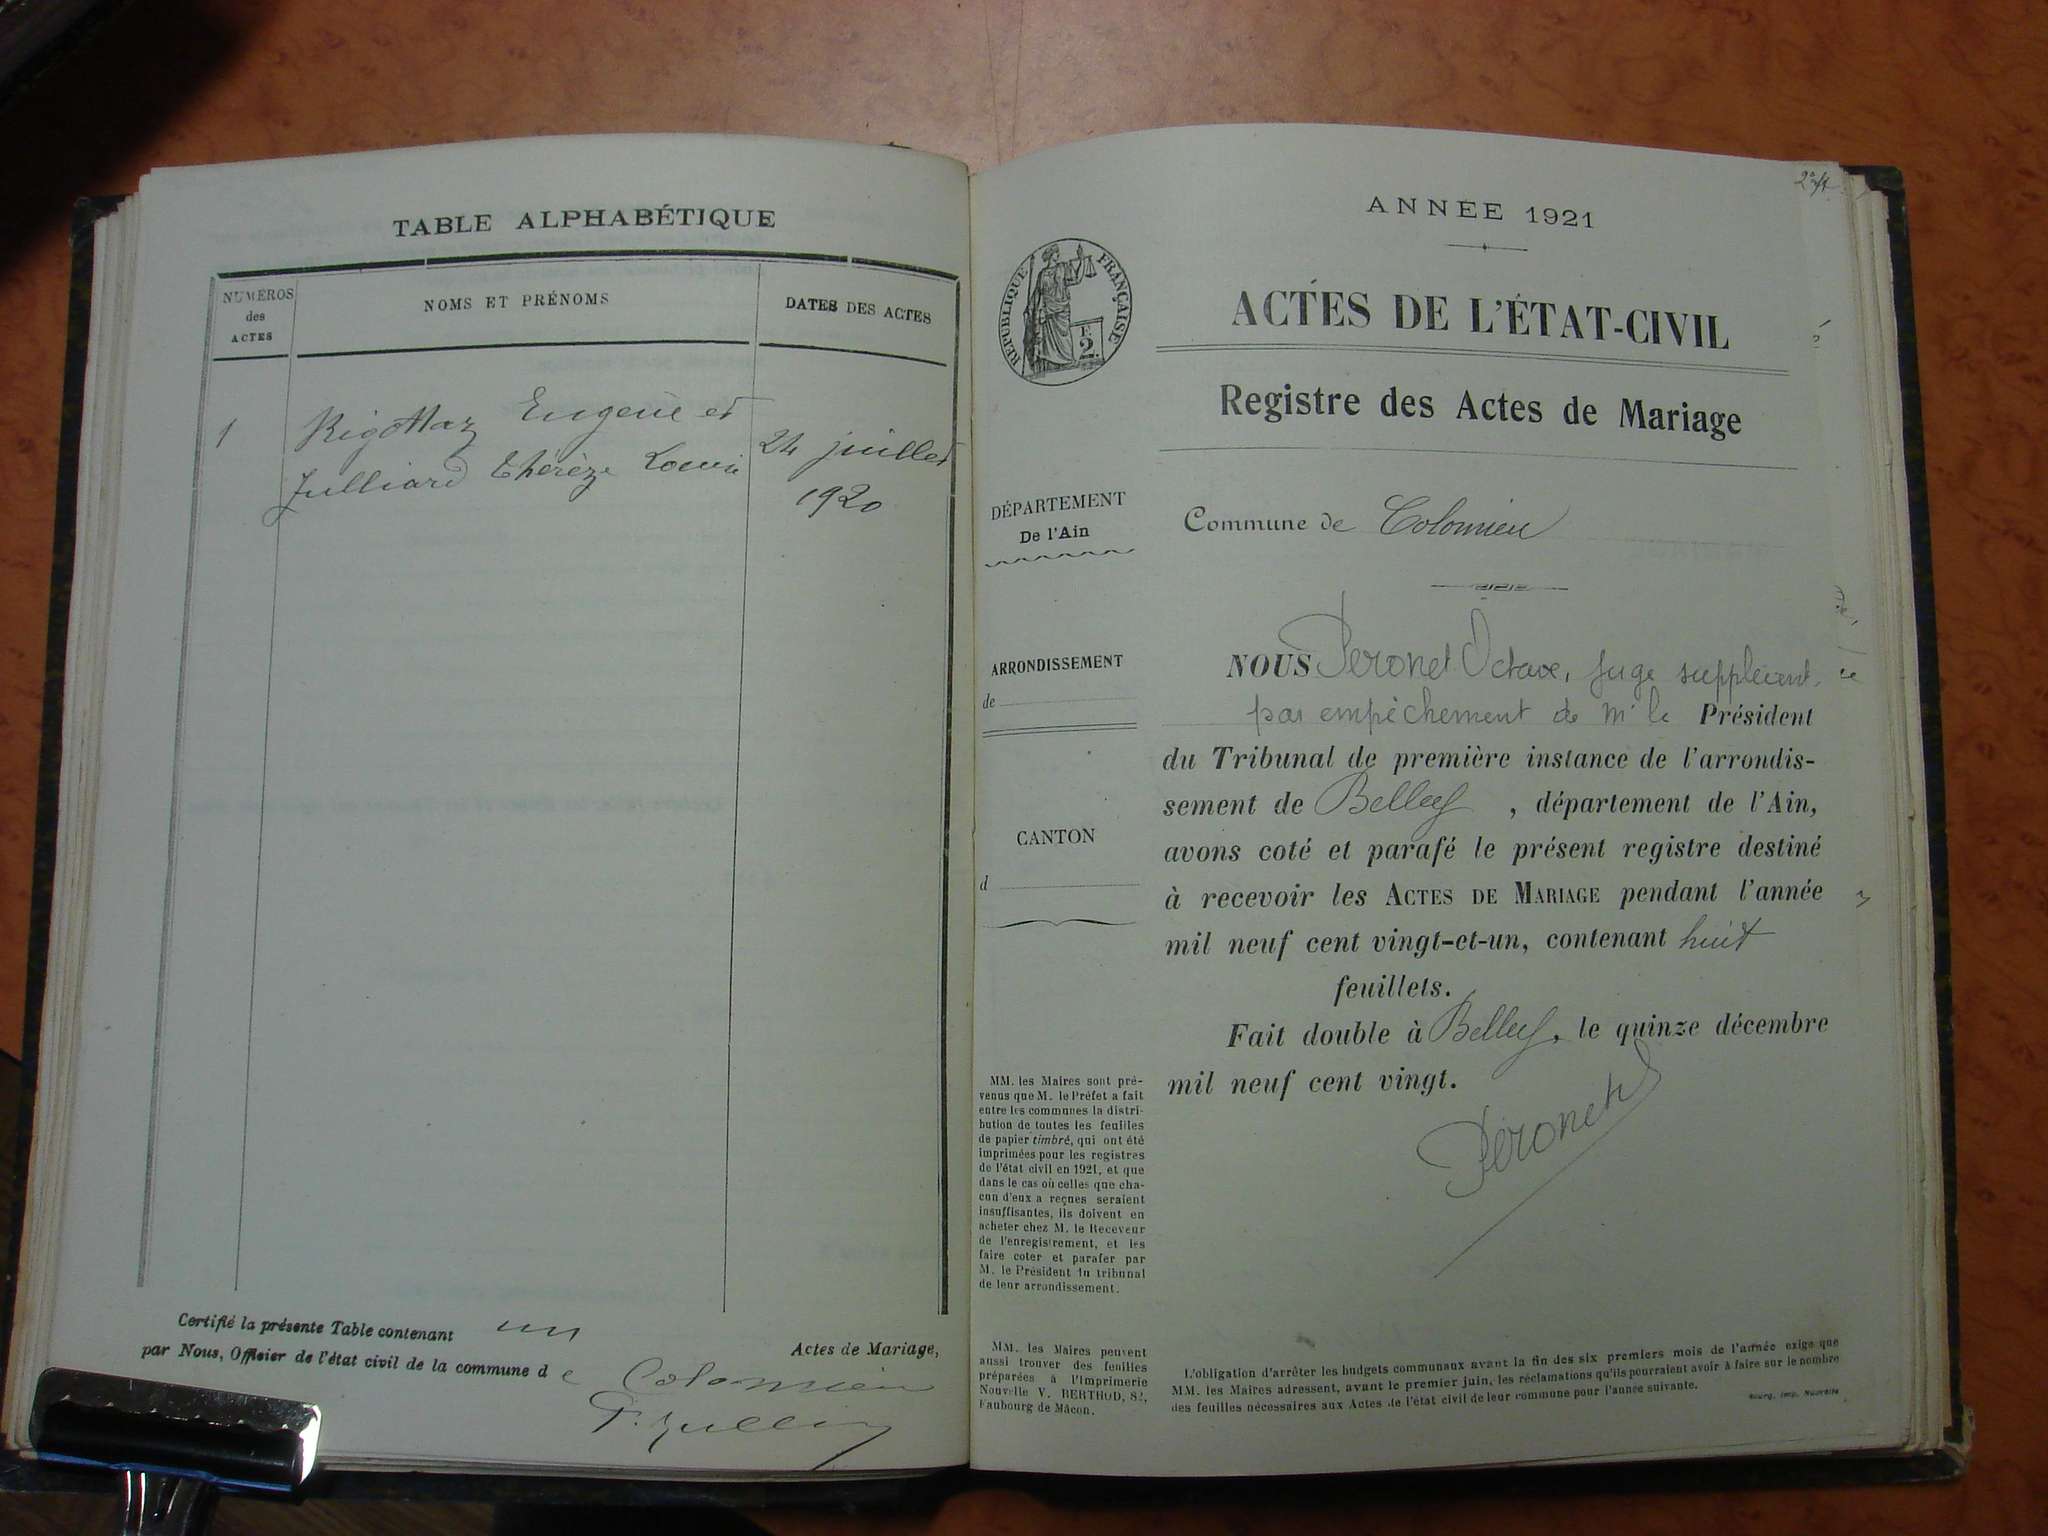 TABLE ALPHABÉTIQUE
NUMÉROS
des
ACTES
NOMS ET PRÉNOMS
DATES DES ACTES
1
Rigottaz Eugène et
Julliard Thérèze Louise
24 juillet
1920
Certifié la présente Table contenant un
Actes de Mariage,
par Nous, Officier de l'état civil de la commune de Colomieu
ANNÉE 1921
RÉPUBLIQUE FRANÇAISE
2
ACTES DE L'ÉTAT-CIVIL
Registre des Actes de Mariage
DÉPARTEMENT
De l'Ain
Commune de Colomieu
ARRONDISSEMENT
de
CANTON
d
NOUS Peronet Octave, juge suppléant
par empêchement de Mr le Président
du Tribunal de première instance de l'arrondis-
sement de Belley , département de l'Ain,
avons coté et parafé le présent registre destiné
à recevoir les ACTES DE MARIAGE pendant l'année
mil neuf cent vingt-et-un, contenant huit
feuillets.
Fait double à Belley, le quinze décembre
mil neuf cent vingt.
Péronet
MM. les Maires sont pré-
venus que M. le Préfet a fait
entre les communes la distri-
bution de toutes les feuilles
de papier timbré, qui ont été
imprimées pour les registres
de l'état civil en 1921, et que
dans le cas où celles que cha-
cun d'eux a reçues seraient
insuffisantes, ils doivent en
acheter chez M. le Receveur
de l'enregistrement, et les
faire coter et parafer par
M. le Président du tribunal
de leur arrondissement.
MM. les Maires peuvent
aussi trouver des feuilles
préparées à l'Imprimerie
Nouvelle V. BERTHOD, 82,
Faubourg de Mâcon.
L'obligation d'arrêter les budgets communaux avant la fin des six premiers mois de l'année exige que
MM. les Maires adressent, avant le premier juin, les réclamations qu'ils pourraient avoir à faire sur le nombre
des feuilles nécessaires aux Actes de l'état civil de leur commune pour l'année suivante.
Bourg, Imp. Nouvelle